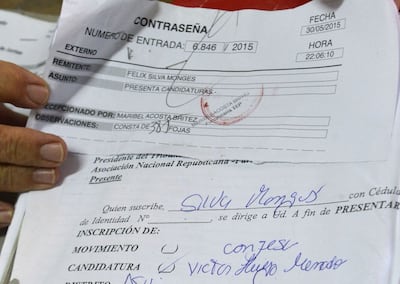 CONTRASEÑA
FECHA
30/05/2015
NUMERO DE ENTRADA: 6.846 / 2015
HORA
22:06:10
EXTERNO
REMITENTE: FELIX SILVA MONGES
ASUNTO: PRESENTA CANDIDATURAS
MARIBEL ACOSTA BRITEZ
RECEPCIONADO POR: MARIBEL ACOSTA BRITEZ
OBSERVACIONES: CONSTA DE FOJAS
Presidente del
Asociación Nacional Republicana
Presente
Quien suscribe, Silva Monges con Cédula
de Identidad N° se dirige a Ud. A fin de PRESENTAR
INSCRIPCIÓN DE:
MOVIMIENTO
CANDIDATURA Victor Hugo
DISTRITO